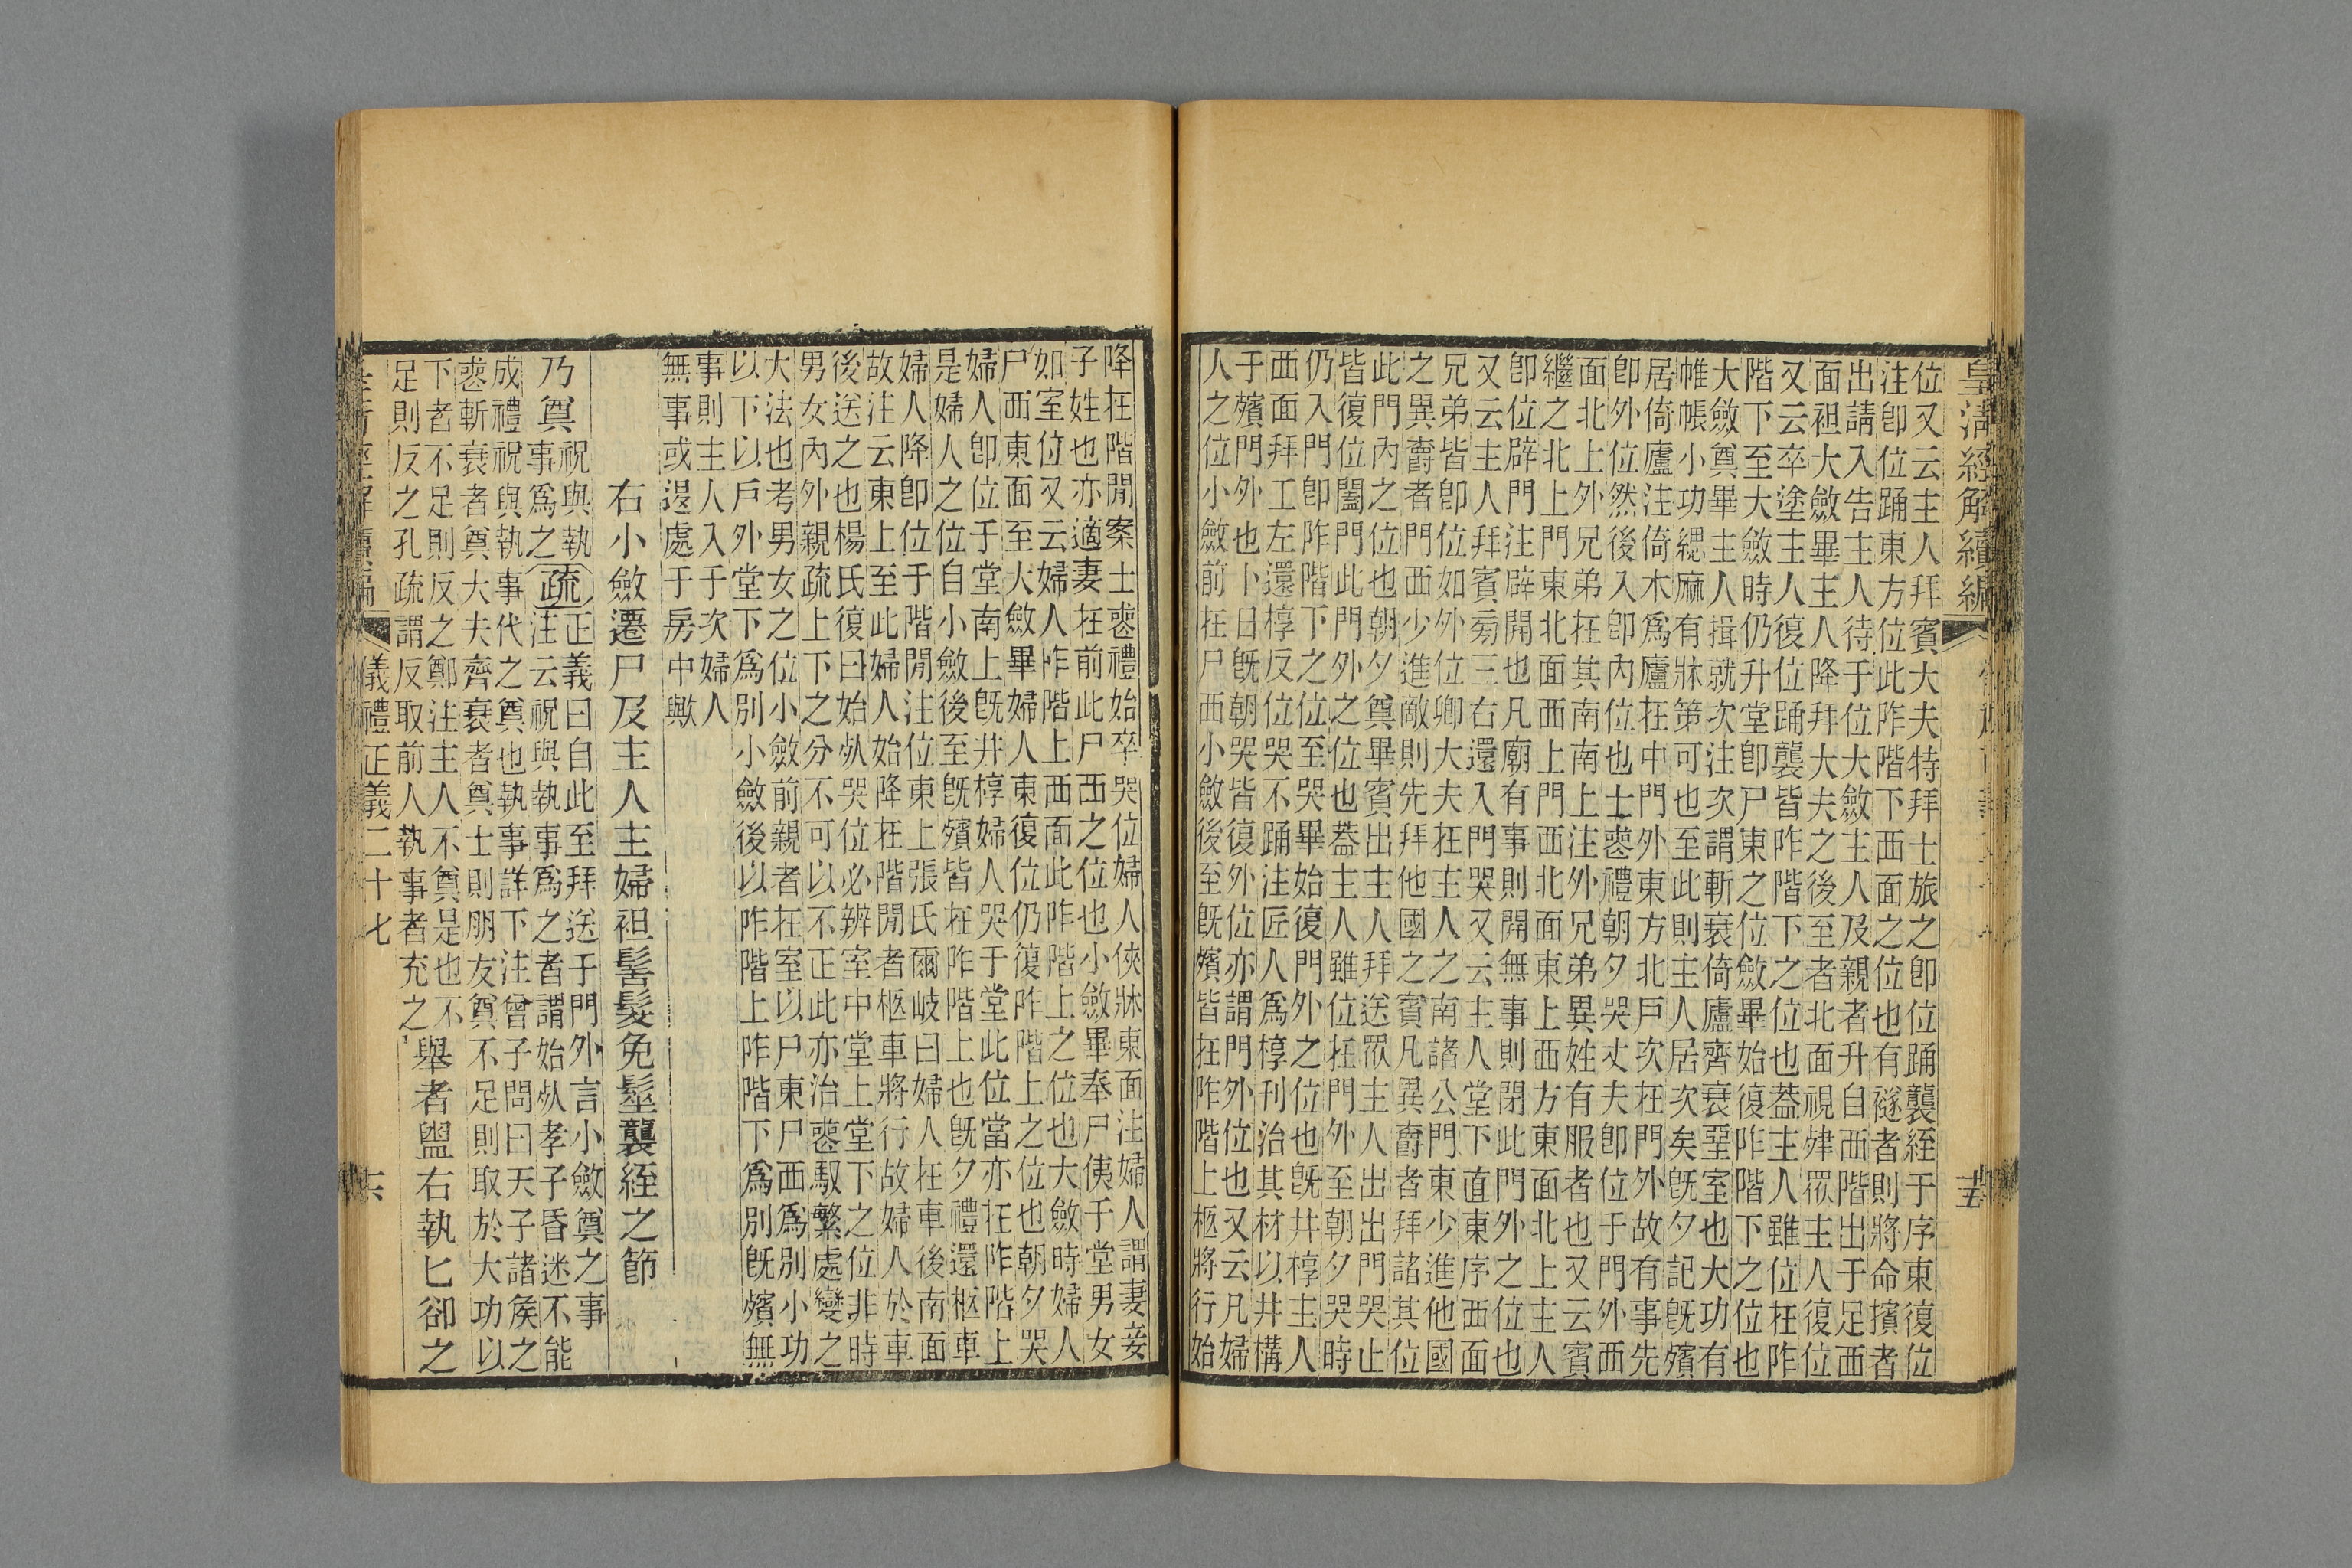 皇淸經解續編
十五
位又云主人拜賓大夫特拜士旅之卽位踊襲絰于序東復位
注卽位踊東方位此阼階下西面之位也有襚者則將命擯者
出請入告主人待于位大斂主人及親者升自西階出于足西
面袒大斂畢主人降拜大夫之後至者北面視肂眾主人復位
又云卒塗主人復位踊襲皆阼階下之位也蓋主人雖位在阼
階下至大斂時仍升堂卽尸東之位斂畢始復阼階下之位也
大斂奠畢主人揖就次注次謂斬衰倚廬齊衰堊室也大功有
帷帳小功緦麻有牀第可也至此則主人居次矣旣夕記旣殯
居倚廬注倚木爲廬在中門外東方北戶次在門外故有事先
卽外位然後入卽內位也士喪禮朝夕哭丈夫卽位于門外西
面北上外兄弟在其南南上注外兄弟異姓有服者也又云賓
繼之北上門東北面西上門西北面東上西方東面北上主人
卽位辟門注辟開也凡廟有事則開無事則閉此門外之位也
又云主人拜賓旁三右還入門哭又云主人堂下直東序西面
兄弟皆卽位如外位卿大夫在主人之南諸公門東少進他國
之異爵者門西少進敵則先拜他國之賓凡異爵者拜諸其位
此門內之位也朝夕奠畢賓出主人拜送眾主人出出門哭止
皆復位闔門此門外之位也蓋主人雖位在門外至朝夕哭時
仍入門卽阼階下之位至哭畢始復門外之位也旣井椁主人
西面拜工左還椁反位哭不踊注匠人爲椁刊治其材以井構
于殯門外也卜日旣朝哭皆復外位亦謂門外位也又云凡婦
人之位小斂前在尸西小斂後至旣殯皆在阼階上柩將行始
降在階閒案士喪禮始卒哭位婦人俠牀東面注婦人謂妻妾
子姓也亦適妻在前此尸西之位也小斂畢奉尸侇于堂男女
如室位又云婦人阼階上西面此阼階上之位也大斂時婦人
尸西東面至大斂畢婦人東復位仍復阼階上之位也朝夕哭
婦人卽位于堂南上旣井椁婦人哭于堂此位當亦在阼階上
是婦人之位自小斂後至旣殯皆在阼階上也旣夕禮還柩車
婦人降卽位于階閒注位東上張氏爾岐曰婦人在車後南面
故注云東上至此婦人始降在階閒者柩車將行故婦人於車
後送之也楊氏復曰始死哭位必辨室中堂上堂下之位非時
男女內外親疏上下之分不可以不正此亦治喪馭繁處變之
大法也考男女之位小斂前親者在室以尸東尸西爲別小功
以下以戶外堂下爲別小斂後以阼階上阼階下爲別旣殯無
事則主人入于次婦人
無事或退處于房中歟
右小斂遷尸及主人主婦袒髻髮免髽襲絰之節
乃奠
祝與執
事爲之
疏
正義曰自此至拜送于門外言小斂奠之事
注云祝與執事爲之者謂始死孝子昏迷不能
成禮祝與執事代之奠也執事詳下注曾子問曰天子諸侯之
喪斬衰者奠大夫齊衰者奠士則朋友奠不足則取於大功以
下者不足則反之鄭注主人不奠是也不
足則反之孔疏謂反取前人執事者充之
舉者盥右執匕卻之
儀禮正義二十七
十六